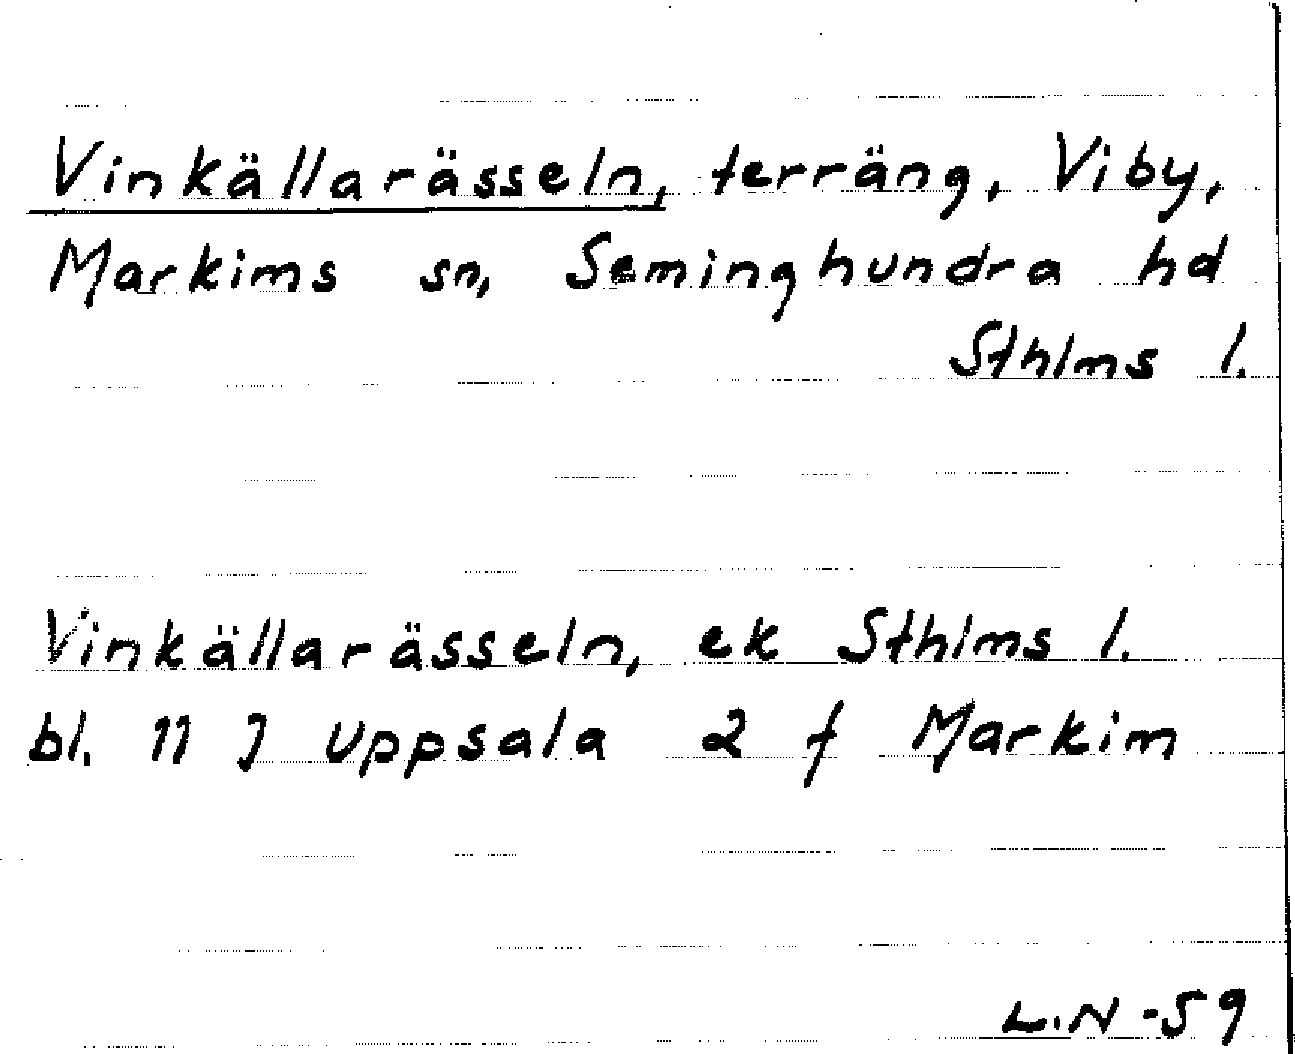 Vinkällarässeln, terräng, Viby,
Markims sn, Seminghundra hd
Sthlms l.
Vinkällarässeln, ek Sthlms l.
bl. 11 J Uppsala 2 f Markim
L.N -59